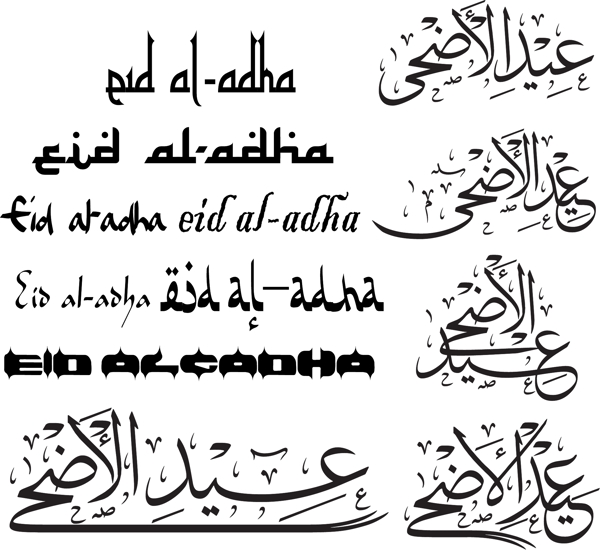 eid al-adha
عيد الأضحى
Eid al-adha
عيد الأضحى
Eid al-adha eid al-adha
Eid al-adha eid al-adha
عيد الأضحى
EID AL-ADHA
عيد الأضحى
عيد الأضحى